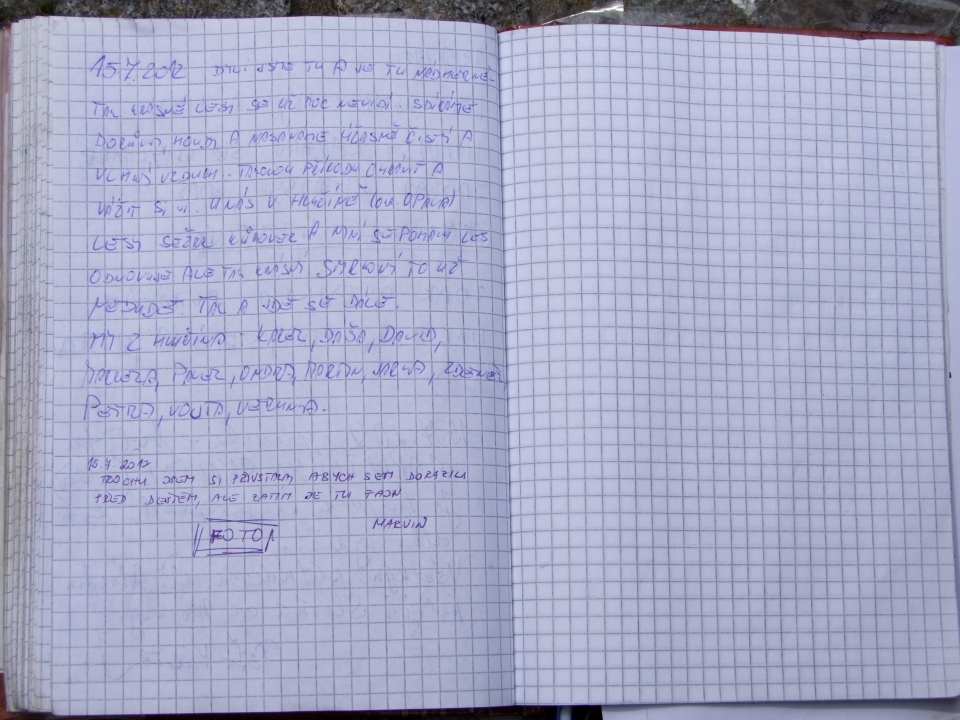 15.7.2012 DNI JSME TU A JE TU NÁDHERNĚ.
TAK KRÁSNÉ LESY SE UŽ MOC NEVIDÍ. SBÍRÁME
BORŮVKY, HOUBY A NASÁVÁME ÚŽASNĚ ČISTÝ A
VLHKÝ VZDUCH. TAKOVOU PŘÍRODU CHRÁNIT A
VÁŽIT SI JI. U NÁS V HLUČÍNĚ (OKR. OPAVA)
LESY SEŽRAL KŮROVEC A NYNÍ SE POMALU LES
OBNOVUJE ALE TAK KRÁSNÝ SMRKOVÝ TO UŽ
NEBUDE. TAK A JDE SE DÁLE.
MY Z HLUČÍNA: KAREL, DÁŠA, DAVID,
PAVEL, ONDRA, MARTIN, ZDENEK,
PETRA, VOJTA, VERUNKA.
15.7.2012
TROCHU JSEM SI PŘIVSTAL, ABYCH SEM DORAZIL
PŘED DEŠTĚM, ALE ZATÍM JE TU FAJN
FOTO
MARVIN